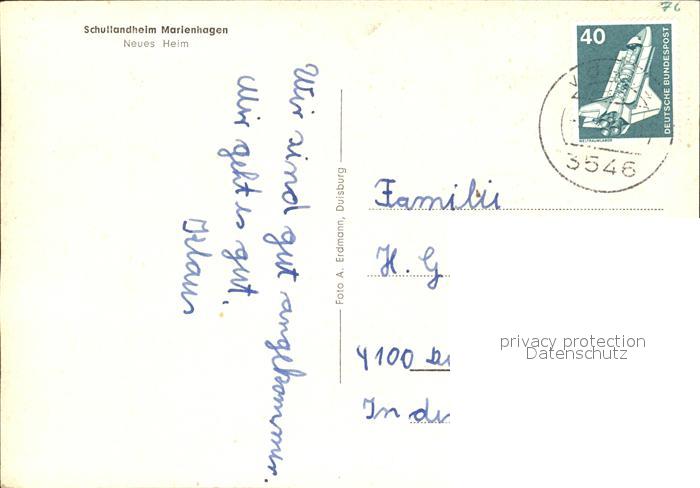 Schullandheim Marienhagen
Neues Heim
76
40
DEUTSCHE BUNDESPOST
WELTRAUMLABOR
3546
Wir sind gut angekommen.
Mir geht es gut.
Klaus
Foto A. Erdmann, Duisburg
Familie
H. G
4100
In de
privacy protection
Datenschutz